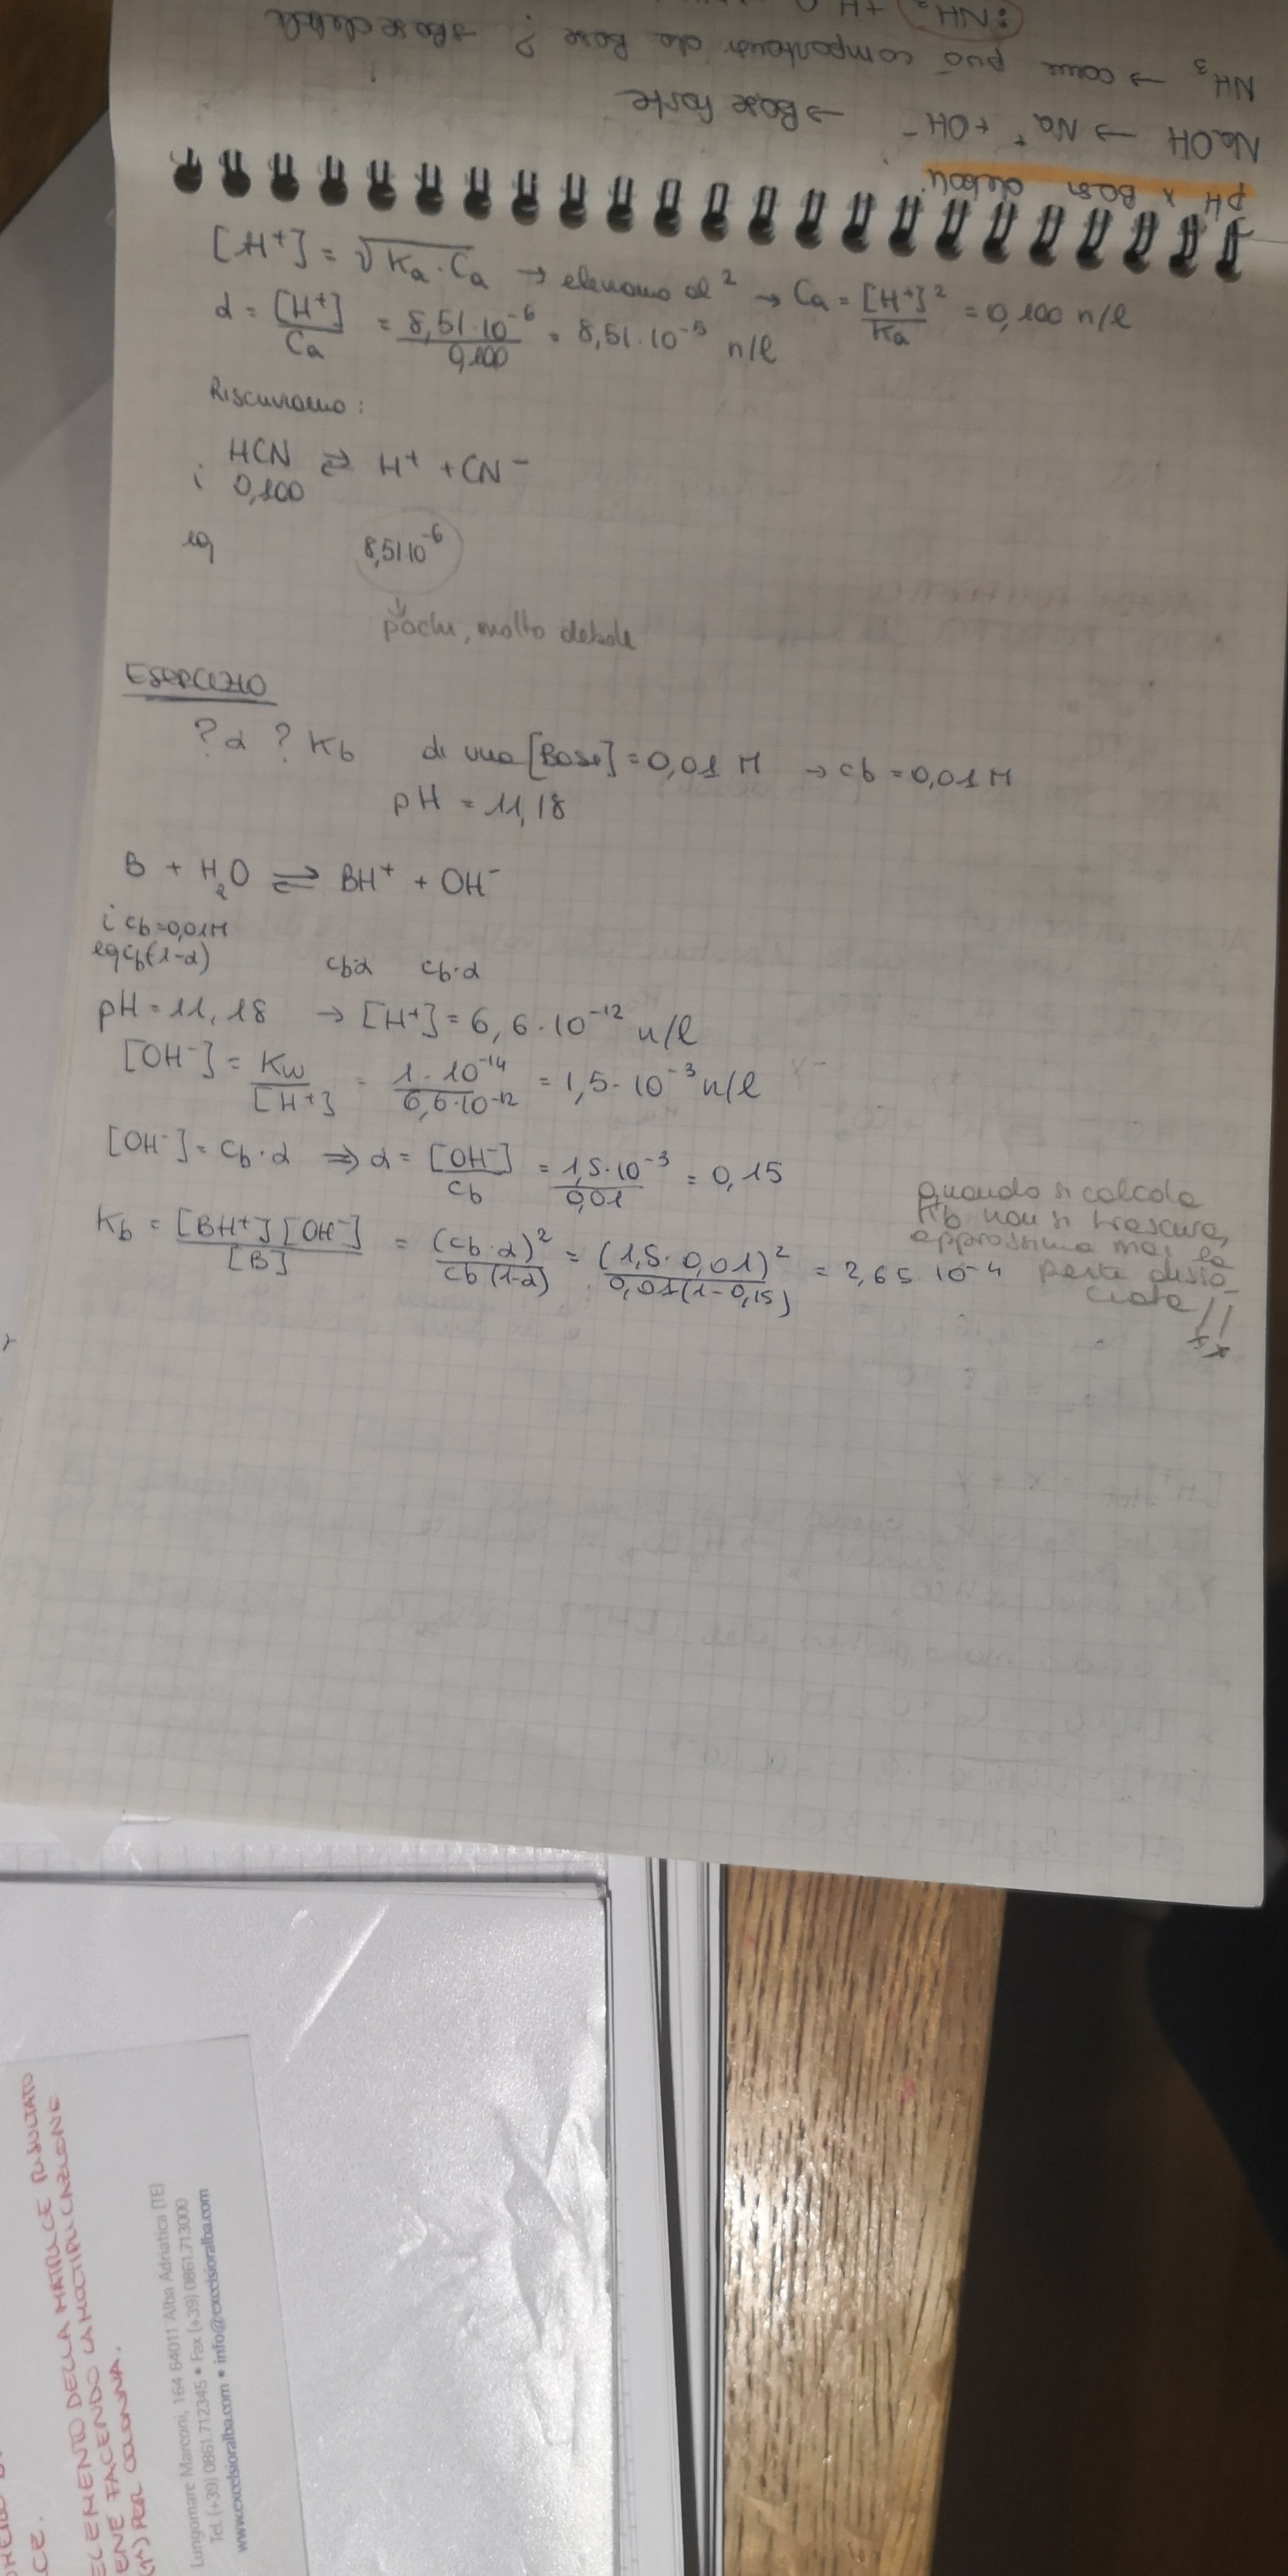 :NH₃ + H
NH₃ → come può comportarsi da base? → Base debole
NaOH → Na⁺ + OH⁻ → Base forte
pH x Basi deboli
[H⁺] = √Ka·Ca → eleviamo al ² → Ca = [H⁺]²/Ka = 0,100 n/l
α = [H⁺]/Ca = 8,51·10⁻⁶/0,100 = 8,51·10⁻⁵ n/l
Riscriviamo:
HCN ⇄ H⁺ + CN⁻
i 0,100
eq 8,51·10⁻⁶
pochi, molto debole
ESERCIZIO
? α ? Kb di una [Base] = 0,01 M → cb = 0,01 M
pH = 11,18
B + H₂O ⇌ BH⁺ + OH⁻
i cb=0,01M
eq cb(1-α) cb·α cb·α
pH = 11,18 → [H⁺] = 6,6·10⁻¹² n/l
[OH⁻] = Kw/[H⁺] = 1·10⁻¹⁴/6,6·10⁻¹² = 1,5·10⁻³ n/l
[OH⁻] = cb·α ⇒ α = [OH⁻]/cb = 1,5·10⁻³/0,01 = 0,15
Kb = [BH⁺][OH⁻]/[B] = (cb·α)²/cb(1-α) = (1,5·0,01)²/0,01(1-0,15) = 2,65·10⁻⁴
quando si calcola
Kb non si trascura,
approssima mai la
parte disso-
ciata!!
ELEMENTO DELLA MATRICE RISULTATO
ENE FACENDO LA MOLTIPLICAZIONE
(1ª) PER COLONNA.
Lungomare Marconi, 164 64011 Alba Adriatica (TE)
Tel. (+39) 0861.712345 • Fax (+39) 0861.713000
www.excelsioralba.com • info@excelsioralba.com